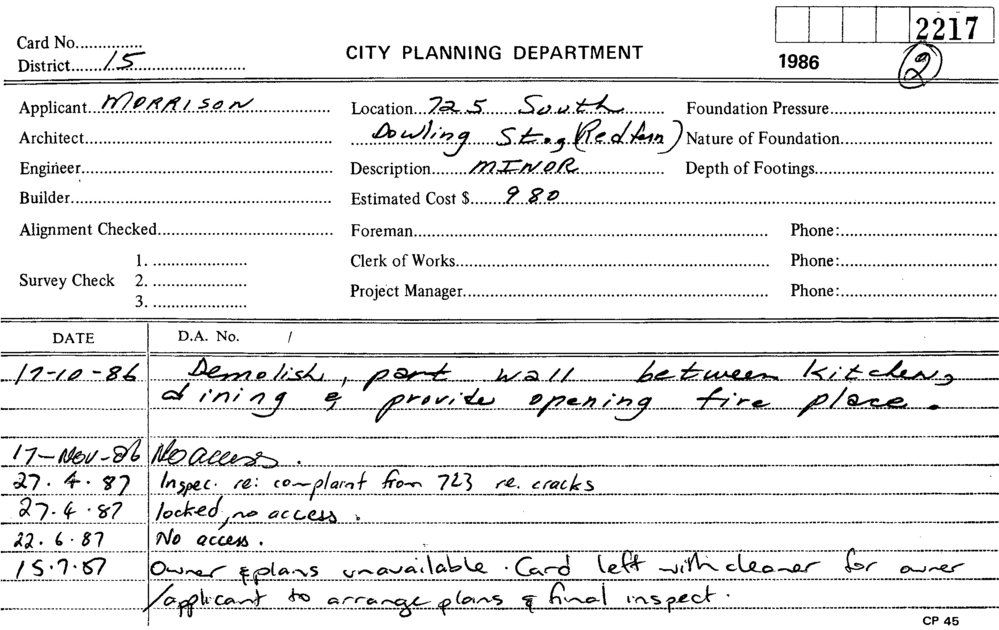 2217
Card No.
CITY PLANNING DEPARTMENT
District 15
1986
2
Applicant MORRISON
Location 725 South
Foundation Pressure
Architect
Dowling St., (Redfern)
Nature of Foundation
Engineer
Description MINOR
Depth of Footings
Builder
Estimated Cost $ 980
Alignment Checked
Foreman
Phone:
Survey Check
1.
2.
3.
Clerk of Works
Phone:
Project Manager
Phone:
DATE D.A. No. /
17-10-86 Demolish, part wall between kitchen,
dining & provide opening fire place.
17-Nov-86 No access.
27.4.87 Inspec. re: complaint from 723 re. cracks
27.4.87 locked, no access.
22.6.87 No access.
15.7.87 Owner & plans unavailable. Card left with cleaner for owner
/applicant to arrange plans & final inspect.
CP 45